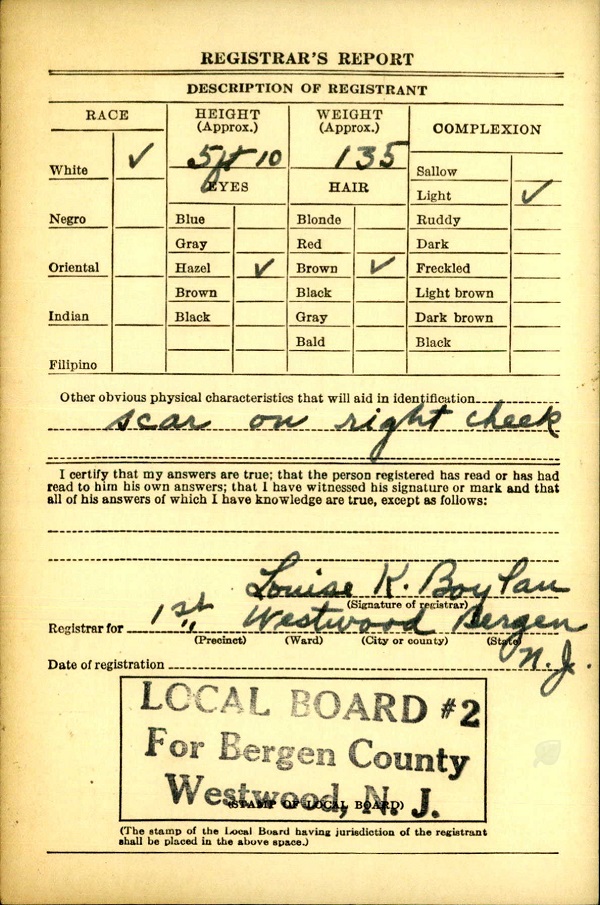 REGISTRAR'S REPORT
DESCRIPTION OF REGISTRANT
RACE
HEIGHT
(Approx.)
WEIGHT
(Approx.)
COMPLEXION
White ✓
5 ft 10
135
Sallow
EYES
HAIR
Light ✓
Negro
Blue
Blonde
Ruddy
Gray
Red
Dark
Oriental
Hazel ✓
Brown ✓
Freckled
Brown
Black
Light brown
Indian
Black
Gray
Dark brown
Bald
Black
Filipino
Other obvious physical characteristics that will aid in identification
scar on right cheek
I certify that my answers are true; that the person registered has read or has had
read to him his own answers; that I have witnessed his signature or mark and that
all of his answers of which I have knowledge are true, except as follows:
Louise K. Boylan
(Signature of registrar)
Registrar for 1st " Westwood Bergen
(Precinct) (Ward) (City or county) (State)
N.J.
Date of registration
LOCAL BOARD #2
For Bergen County
Westwood, N. J.
(STAMP OF LOCAL BOARD)
(The stamp of the Local Board having jurisdiction of the registrant
shall be placed in the above space.)